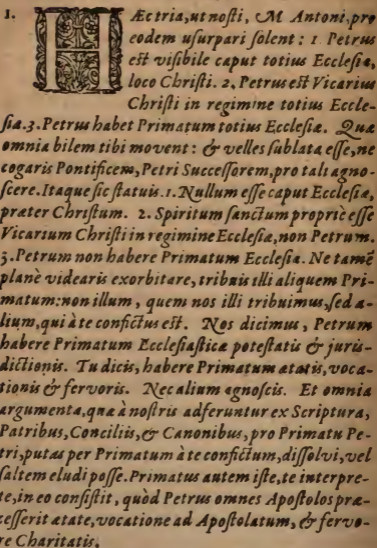 1. HÆc tria, ut nosti, M Antoni, pro
eodem usurpari solent: 1 Petrus
est visibile caput totius Ecclesiæ,
loco Christi. 2. Petrus est Vicarius
Christi in regimine totius Eccle-
siæ. 3. Petrus habet Primatum totius Ecclesiæ. Quæ
omnia bilem tibi movent: & velles sublata esse, ne
cogaris Pontificem, Petri Successorem, pro tali agno-
scere. Itaque sic statuis. 1. Nullum esse caput Ecclesiæ,
præter Christum. 2. Spiritum sanctum propriè esse
Vicarium Christi in regimine Ecclesiæ, non Petrum.
3. Petrum non habere Primatum Ecclesiæ. Ne tamẽ
planè videaris exorbitare, tribuis illi aliquem Pri-
matum: non illum, quem nos illi tribuimus, sed a-
lium, qui à te confictus est. Nos dicimus, Petrum
habere Primatum Ecclesiasticæ potestatis & juris-
dictionis. Tu dicis, habere Primatum ætatis, voca-
tionis & fervoris. Nec alium agnoscis. Et omnia
argumenta, quæ à nostris adferuntur ex Scriptura,
Patribus, Conciliis, & Canonibus, pro Primatu Pe-
tri, putas per Primatum à te confictum, dissolvi, vel
saltem eludi posse. Primatus autem iste, te interpre-
te, in eo consistit, quòd Petrus omnes Apostolos præ-
cesserit ætate, vocatione ad Apostolatum, & fervo-
re Charitatis.